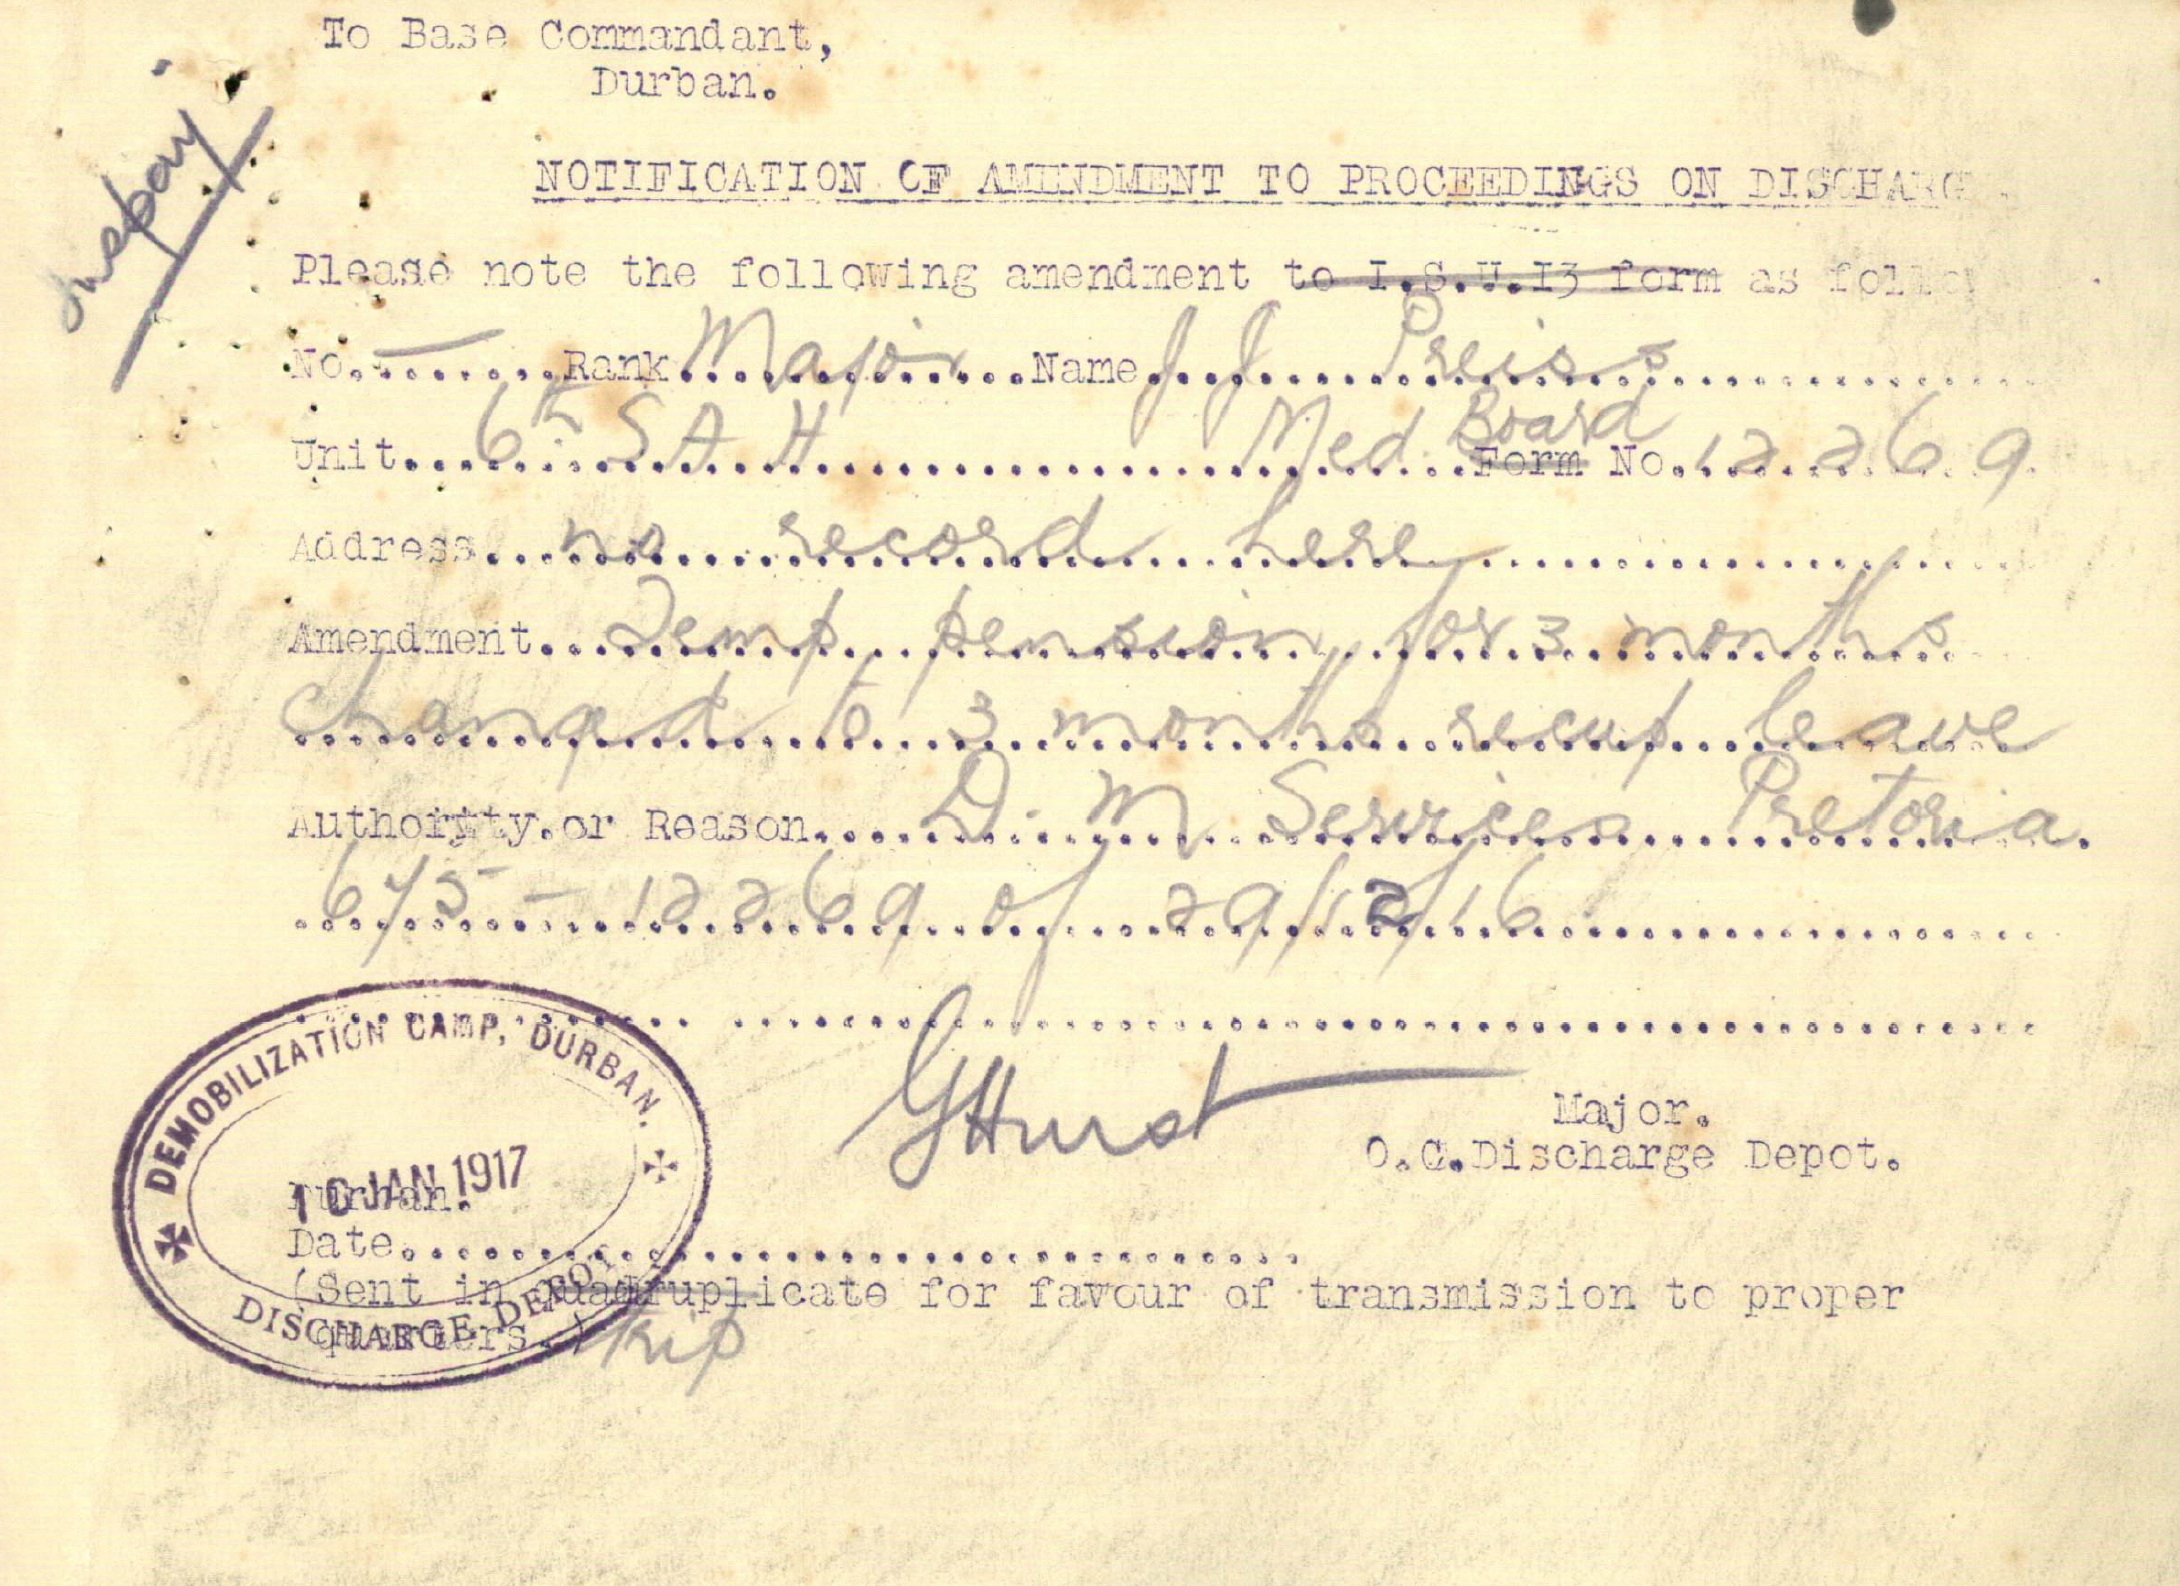 To Base Commandant,
Durban.
NOTIFICATION OF AMENDMENT TO PROCEEDINGS ON DISCHARG
Please note the following amendment to I.S.U.I3 form as follow
No. — Rank Major Name J J Preiss
Unit 6th S A H Med Board Form No. 12269
Address no record here
Amendment Temp pension for 3 months
changed to 3 months recup leave
Authority or Reason D. M Services Pretoria.
6/75 - 12269 of 29/12/16
GHurst
Major.
O.C.Discharge Depot.
DEMOBILIZATION CAMP, DURBAN.
JAN 1917
DISCHARGE DEPOT
Durban.
Date
(Sent in quadruplicate for favour of transmission to proper
quarters.)